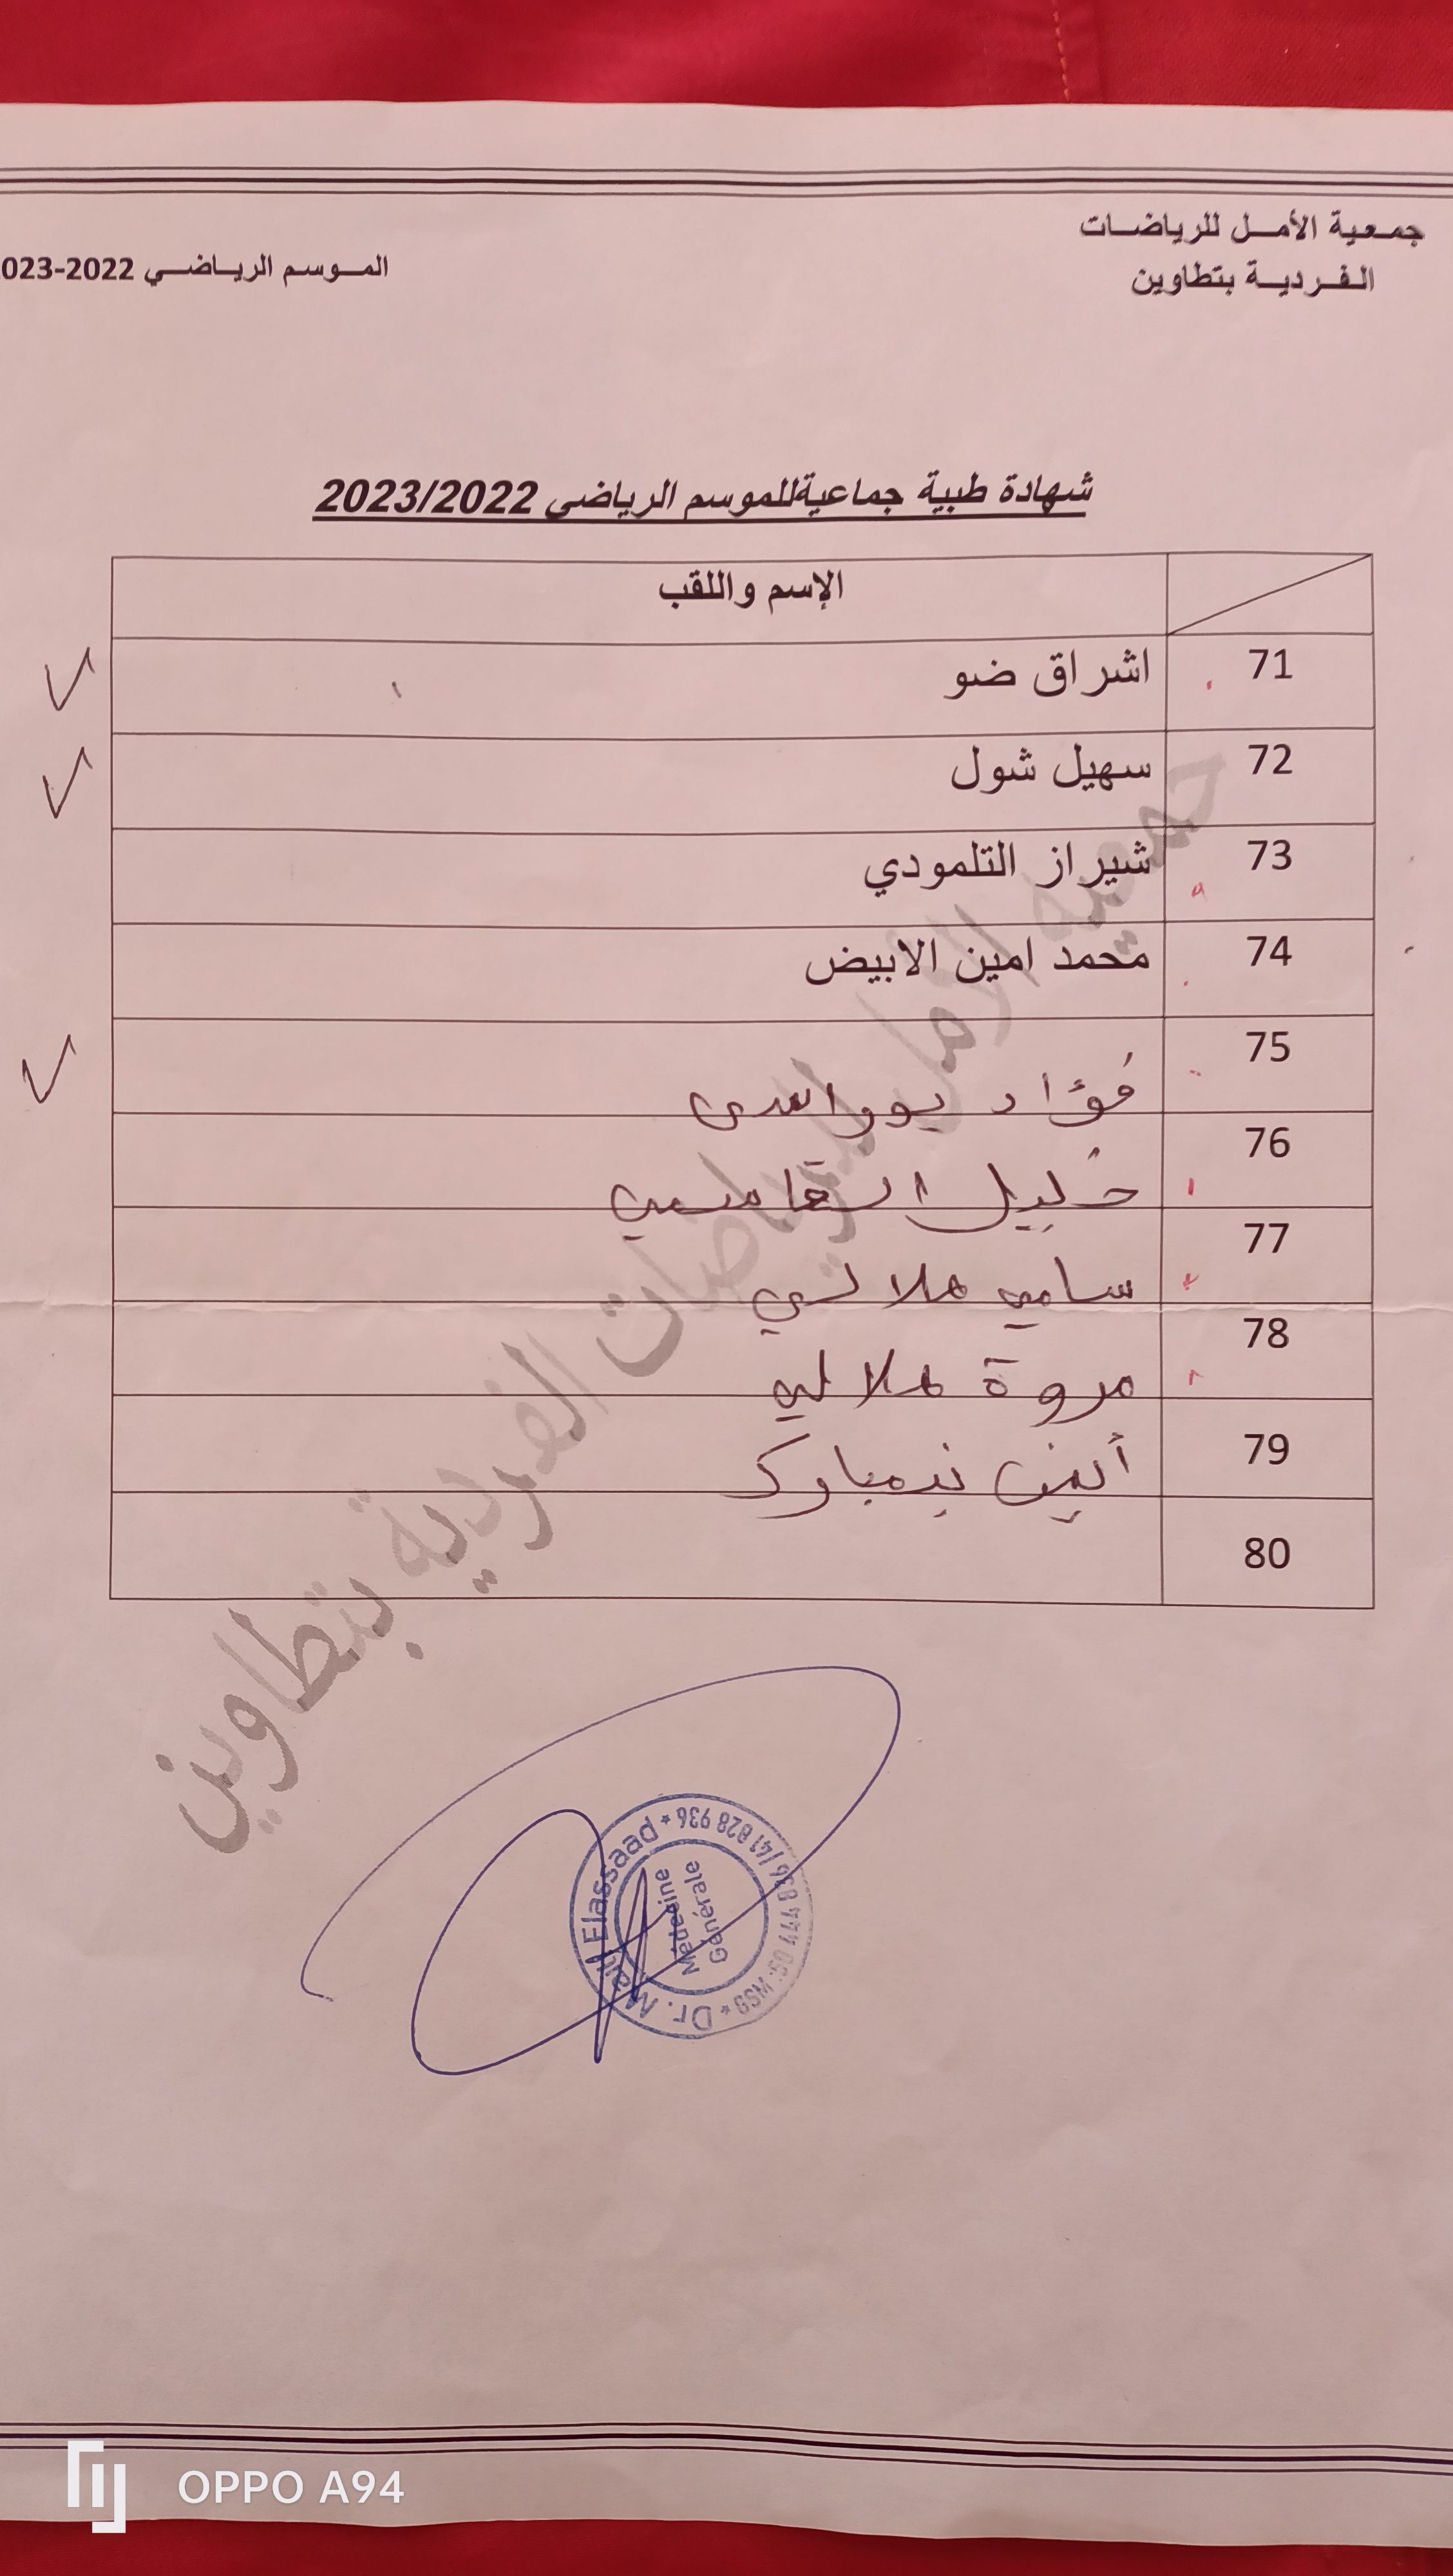 جمعية الأمل للرياضات
الفردية بتطاوين
الموسم الرياضي 2022-023
شهادة طبية جماعيةللموسم الرياضي 2023/2022
الإسم واللقب
71 اشراق ضو
72 سهيل شول
73 شيراز التلمودي
74 محمد امين الابيض
75 فؤاد
76 خليل القاسمي
77 سامي هلالي
78 مروة هلالي
79 أيمن بنمبارك
80
جمعية الأمل للرياضات الفردية بتطاوين
Elassaad * Dr.
Médecine
Générale
GSM: 50 444 836 / 41 828 936 *
OPPO A94